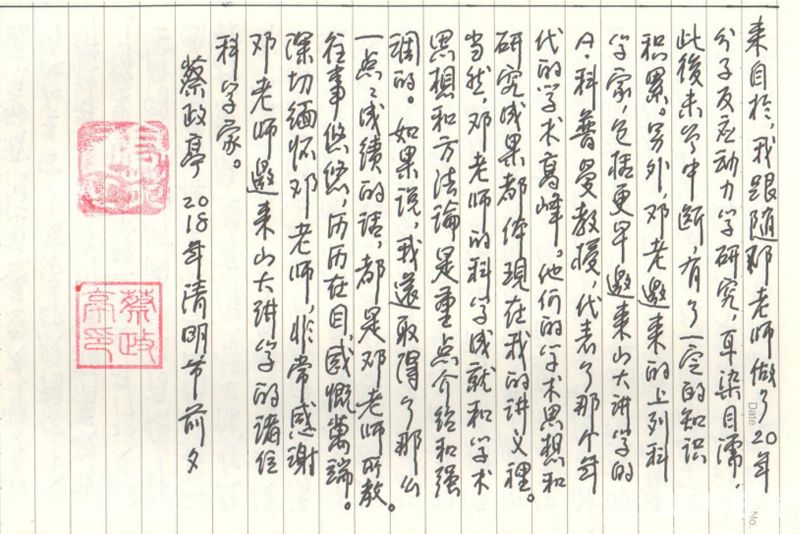 来自於，我跟随邓老师做了20年
分子反应动力学研究，耳染目濡，
此後未曾中断，有了一定的知识
积累。另外，邓老邀来的上列科
学家，包括更早邀来山大讲学的
A·科普曼教授，代表了那个年
代的学术高峰。他们的学术思想和
研究成果都体现在我的讲义裡。
当然，邓老师的科学成就和学术
思想和方法论是重点介绍和强
调的。如果说，我还取得了那么
一点点成绩的话，都是邓老师所教。
往事悠悠，历历在目，感慨萬端。
深切缅怀邓老师，非常感谢
邓老师邀来山大讲学的诸位
科学家。
蔡政亭 2018年清明节前夕
蔡政
亭印
Date
No